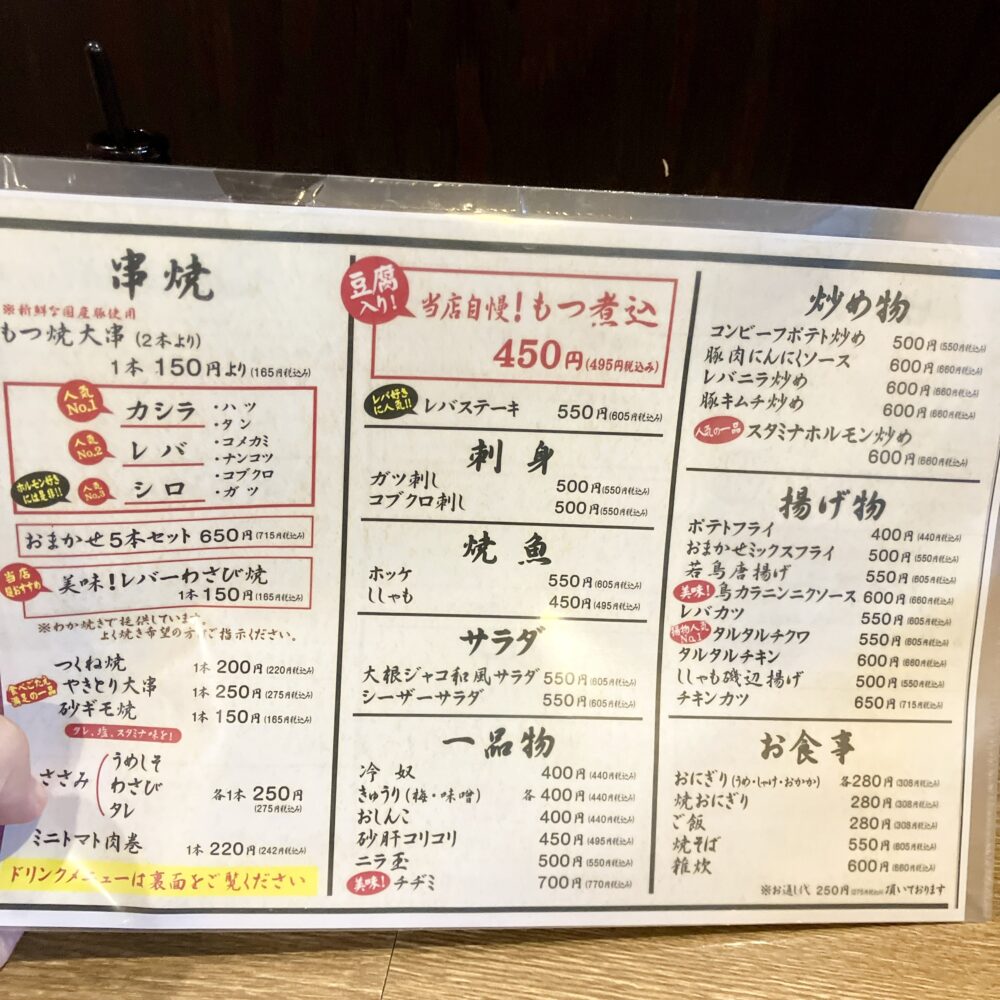 串焼
※新鮮な国産豚使用
もつ焼大串 (2本より)
1本 150円より(165円税込み)
人気No.1 カシラ
人気No.2 レバ
ホルモン好きには是非!! 人気No.3 シロ
・ハツ
・タン
・コメカミ
・ナンコツ
・コブクロ
・ガツ
おまかせ5本セット 650円(715円税込み)
当店 おすすめ 美味!レバーわさび焼
1本 150円(165円税込み)
※わか焼きで提供しています。
よく焼き希望の方ご指示ください。
つくね焼 1本 200円(220円税込み)
食べごたえ満足の一品 やきとり大串 1本 250円(275円税込み)
砂ギモ焼 1本 150円(165円税込み)
タレ、塩、スタミナ味を!
ささみ
うめしそ
わさび
タレ
各1本 250円
(275円税込み)
ミニトマト肉巻 1本 220円(242円税込み)
ドリンクメニューは裏面をご覧ください
豆腐入り!
当店自慢!もつ煮込
450円(495円税込み)
レバ好きに人気!! レバステーキ 550円(605円税込み)
刺身
ガツ刺し 500円(550円税込み)
コブクロ刺し 500円(550円税込み)
焼魚
ホッケ 550円(605円税込み)
ししゃも 450円(495円税込み)
サラダ
大根ジャコ和風サラダ 550円(605円税込み)
シーザーサラダ 550円(605円税込み)
一品物
冷奴 400円(440円税込み)
きゅうり(梅・味噌) 各 400円(440円税込み)
おしんこ 400円(440円税込み)
砂肝コリコリ 450円(495円税込み)
ニラ玉 500円(550円税込み)
美味! チヂミ 700円(770円税込み)
炒め物
コンビーフポテト炒め 500円(550円税込み)
豚肉にんにくソース 600円(660円税込み)
レバニラ炒め 600円(660円税込み)
豚キムチ炒め 600円(660円税込み)
人気の一品 スタミナホルモン炒め
600円(660円税込み)
揚げ物
ポテトフライ 400円(440円税込み)
おまかせミックスフライ 500円(550円税込み)
若鳥唐揚げ 550円(605円税込み)
美味! 鳥カラニンニクソース 600円(660円税込み)
レバカツ 550円(605円税込み)
揚物人気No.1 タルタルチクワ 550円(605円税込み)
タルタルチキン 600円(660円税込み)
ししゃも磯辺揚げ 500円(550円税込み)
チキンカツ 650円(715円税込み)
お食事
おにぎり(うめ・しゃけ・おかか) 各280円(308円税込み)
焼おにぎり 280円(308円税込み)
ご飯 280円(308円税込み)
焼そば 550円(605円税込み)
雑炊 600円(660円税込み)
※お通し代 250円(275円税込み)頂いております